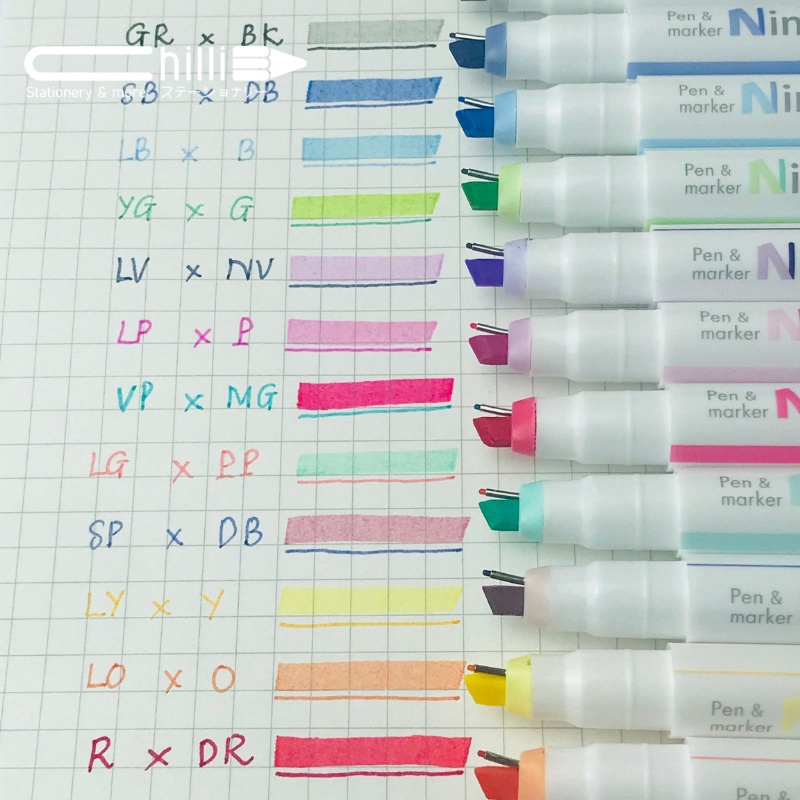 GR x BK
Chilli
Stationery & more ステーショナリー
SB x DB
LB x B
YG x G
LV x NV
LP x P
VP x MG
LG x PP
SP x DB
LY x Y
LO x O
R x DR
Pen &
marker Nin
Pen &
marker Nin
Pen &
marker Ni
Pen &
marker N
Pen &
marker N
Pen &
marker N
Pen &
marker
Pen &
marker
Pen &
marker
Pen &